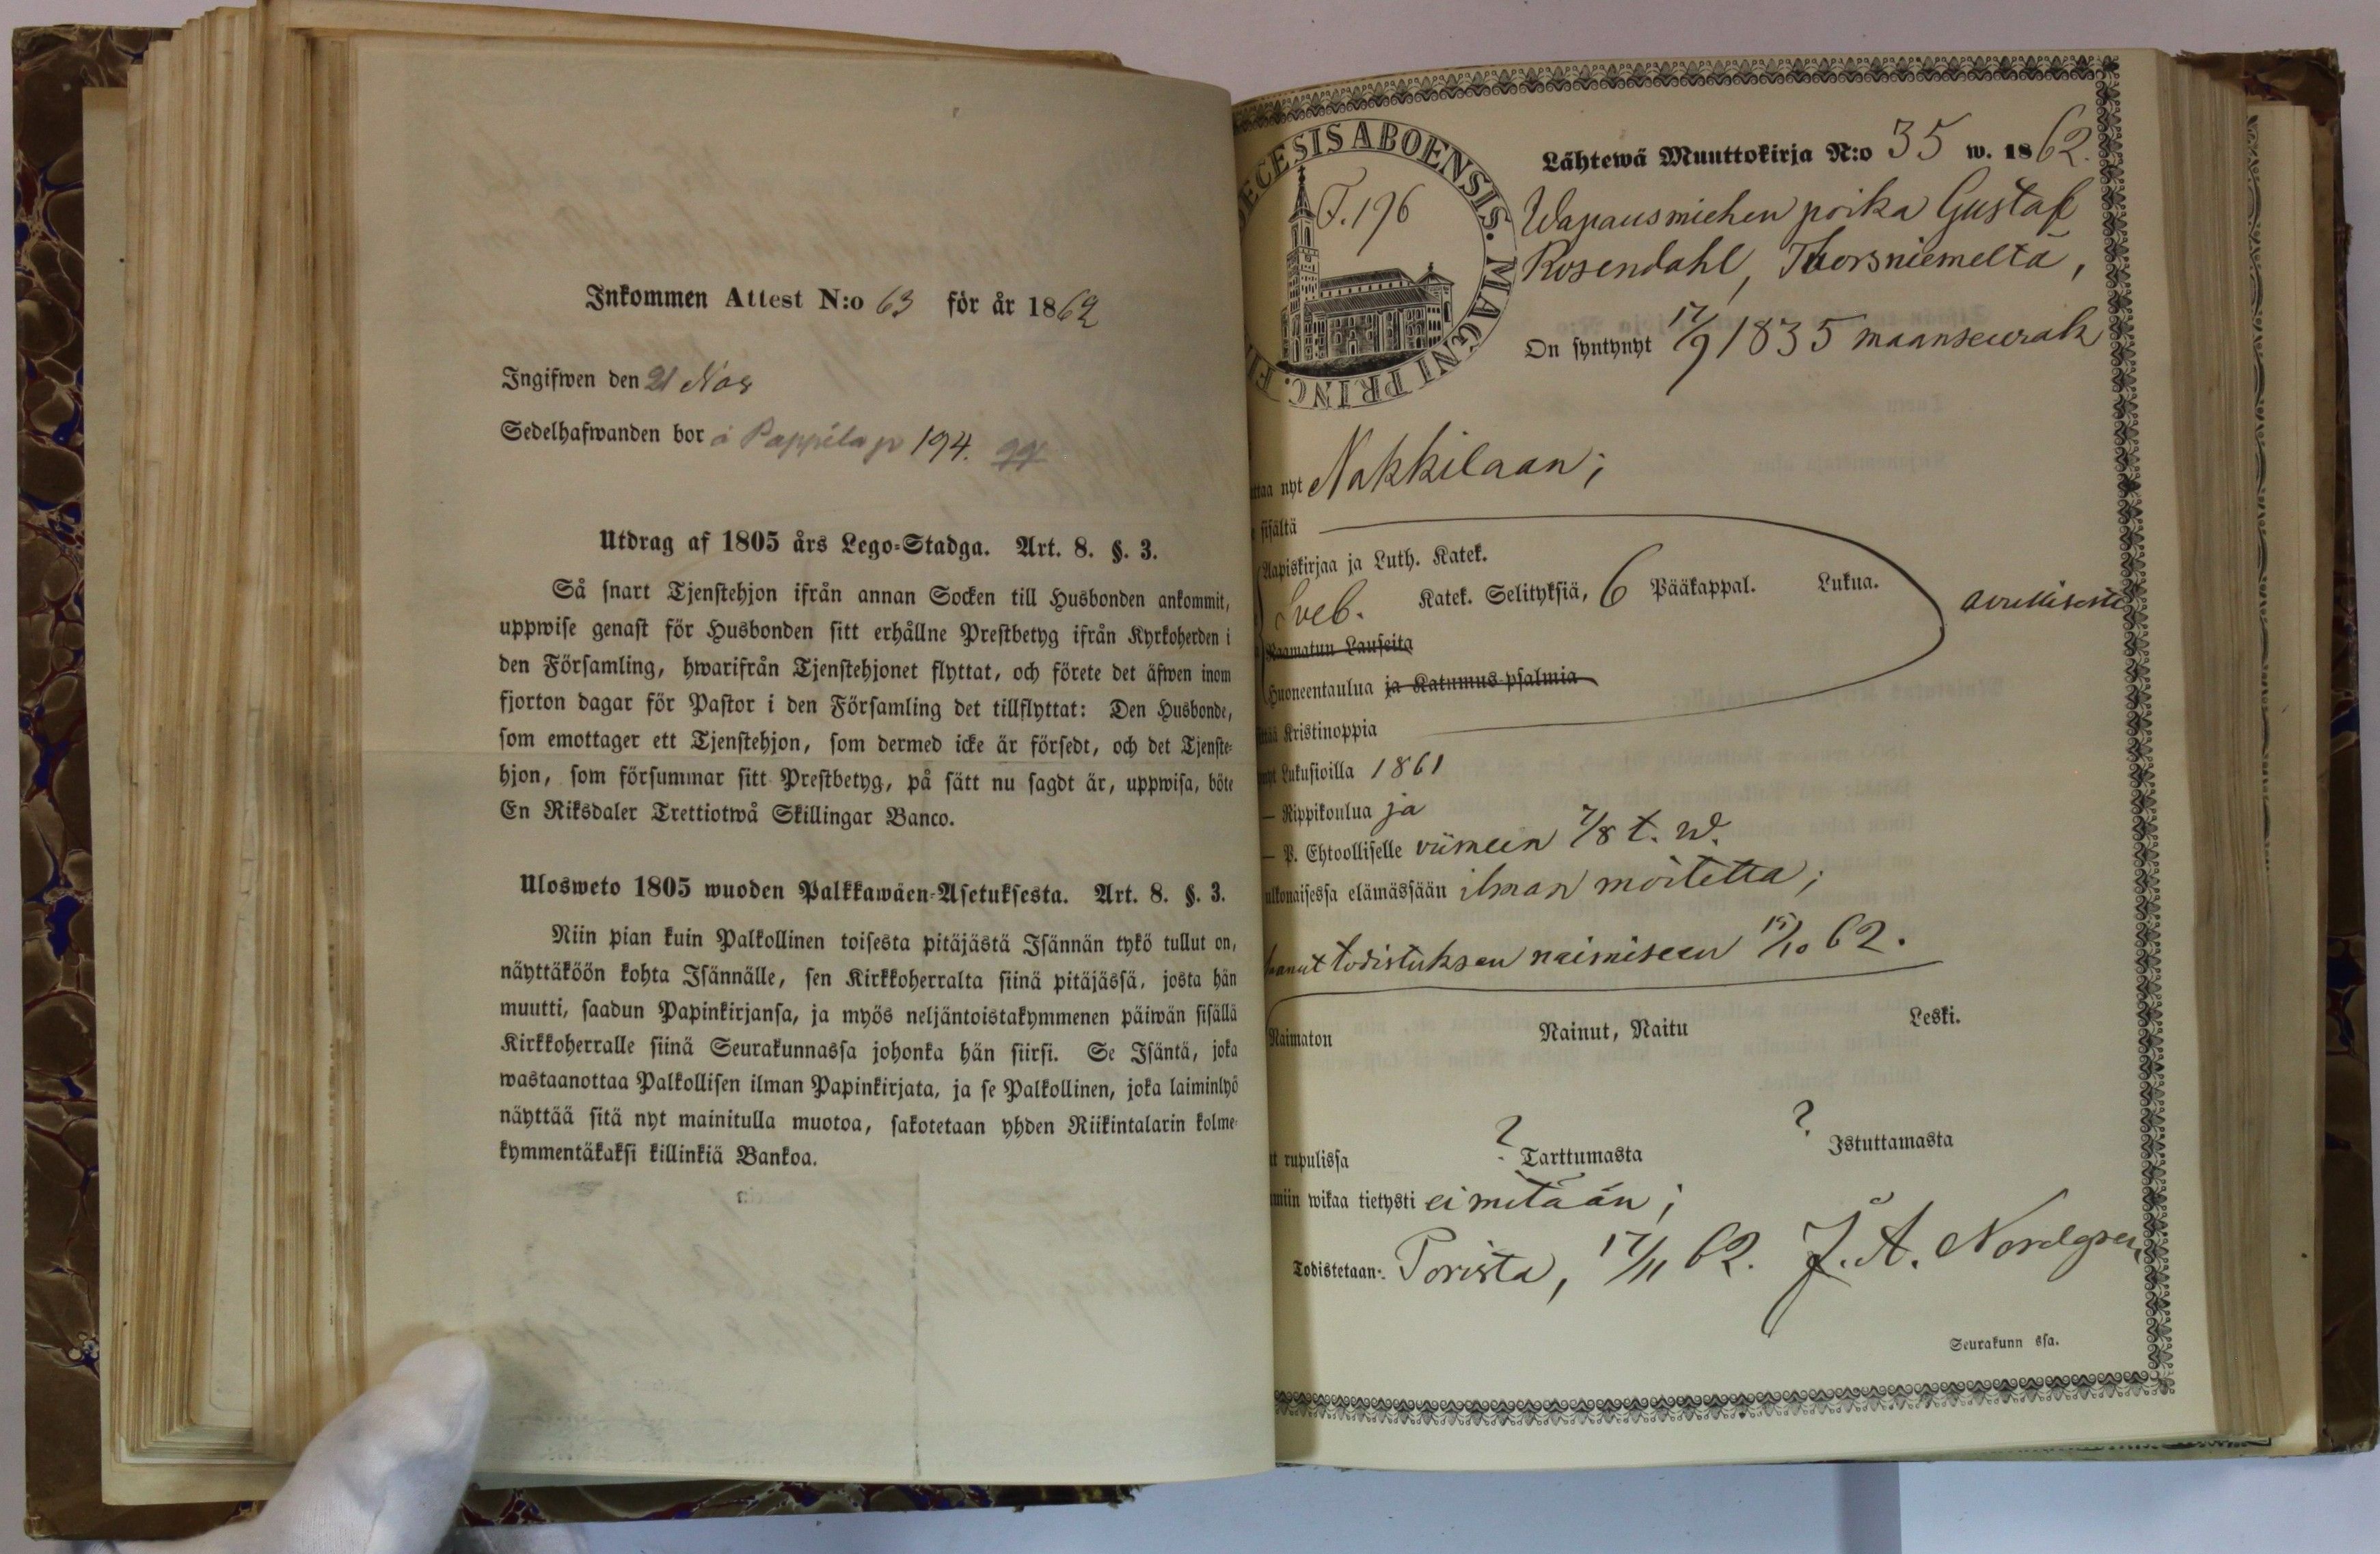 Inkommen Attest N:o 63 för år 1862
Ingifwen den 21 Nov
Sedelhafwanden bor å Pappila p 194.
Utdrag af 1805 års Lego-Stadga. Art. 8. §. 3.
Så snart Tjenstehjon ifrån annan Socken till Husbonden ankommit,
uppwise genast för Husbonden sitt erhållne Prestbetyg ifrån Kyrkoherden i
den Församling, hwarifrån Tjenstehjonet flyttat, och förete det äfwen inom
fjorton dagar för Pastor i den Församling det tillflyttat: Den Husbonde,
som emottager ett Tjenstehjon, som dermed icke är försedt, och det Tjenste-
hjon, som försummar sitt Prestbetyg, på sätt nu sagdt är, uppwisa, böte
En Riksdaler Trettiotwå Skillingar Banco.
Ulosweto 1805 wuoden Palkkawäen-Asetuksesta. Art. 8. §. 3.
Niin pian kuin Palkollinen toisesta pitäjästä Isännän tykö tullut on,
näyttäköön kohta Isännälle, sen Kirkkoherralta siinä pitäjässä, josta hän
muutti, saadun Papinkirjansa, ja myös neljäntoistakymmenen päiwän sisällä
Kirkkoherralle siinä Seurakunnassa johonka hän siirsi. Se Isäntä, joka
wastaanottaa Palkollisen ilman Papinkirjata, ja se Palkollinen, joka laiminlyö
näyttää sitä nyt mainitulla muotoa, sakotetaan yhden Riikintalarin kolme-
kymmentäkaksi killinkiä Bankoa.
ECESIS ABOENSIS. MAGNI PRINC. FI
F. 196
Lähtewä Muuttokirja N:o 35 w. 1862.
Wapausmiehen poika Gustaf
Rosendahl, Thorsniemeltä,
On syntynyt 17/9 1835 maanseurak
ttaa nyt Nakkilaan;
sisältä
Aapiskirjaa ja Luth. Katek.
Sveb. Katek. Selityksiä, 6 Pääkappal. Lukua.
Raamatun Lauseita
Huoneentaulua ja Katumus-psalmia
ttää Kristinoppia
Lukusioilla 1861
— Rippikoulua ja
— P. Ehtoolliselle viimeen 7/8 t. w.
ulkonaisessa elämässään ilman moitetta;
saanut todistuksen naimiseen 15/10 62.
Naimaton Nainut, Naitu Leski.
t rupulissa ? Tarttumasta ? Istuttamasta
miin wikaa tietysti ei mitään;
Todistetaan: Porista, 17/11 62. J. A. Nordgren,
Seurakunn ssa.